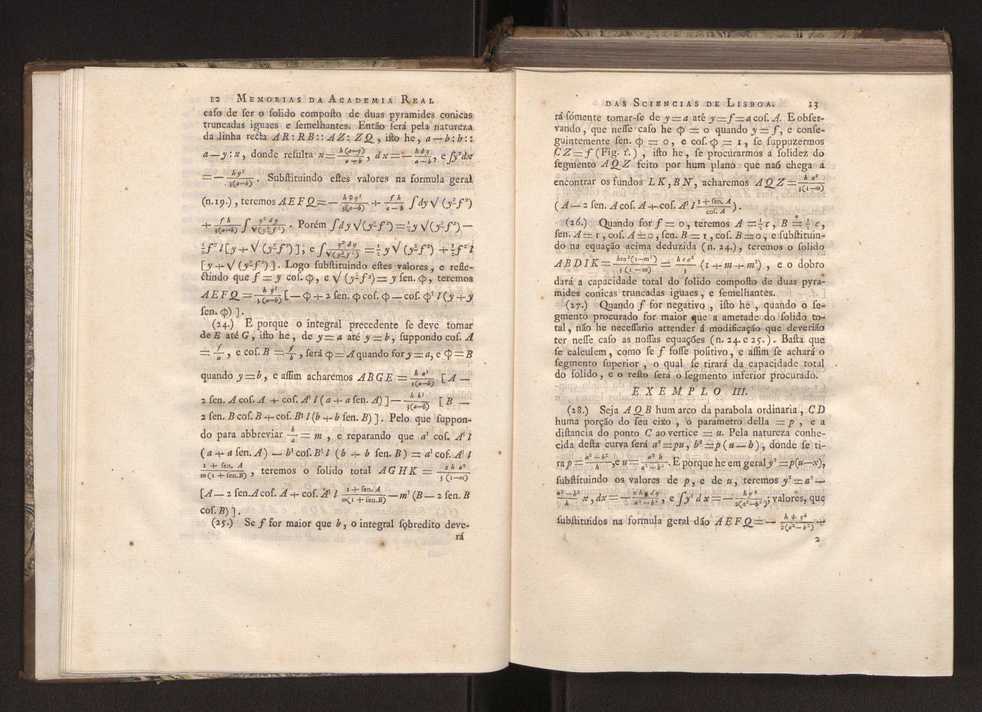 12 MEMORIAS DA ACADEMIA REAL
caſo de ſer o ſolido compoſto de duas pyramides conicas
truncadas iguaes e ſemelhantes. Entáo ſerá pela natureza
da linha recta AR:RB::AZ:ZQ, iſto he, a—b:b::
a—y:x, donde reſulta x=h(a—y)/a—b, dx=—hdy/a—b, e ſy²dx
=—hy³/3(a—b). Subſtituindo eſtes valores na formula geral
(n.19.), teremos AEFQ=—hφy³/3(a—b)+fh/a—b∫dy√(y²-f²)
+fh/3(a—b)∫y²dy/√(y²-f²). Porém ∫dy√(y²-f²)=½y√(y²-f²)—
½f²l[y+√(y²-f²)], e∫y²dy/√(y²-f²)=½y√(y²-f²)+½f²l
[y+√(y²-f²)]. Logo ſubſtituindo eſtes valores, e refle-
ctindo que f=y coſ.φ, e√(y²-f²)=y ſen.φ, teremos
AEFQ=hy³/3(a—b)[—φ+2 ſen.φ coſ.φ—coſ.φ³l(y+y
ſen.φ)].
(24.) E porque o integral precedente ſe deve tomar
de E até G, iſto he, de y=a até y=b, ſuppondo coſ.A
=f/a, e coſ.B=f/b, ſerá φ=A quando for y=a, e φ=B
quando y=b, e aſſim acharemos ABGE=ha³/3(a—b)[A—
2 ſen.A coſ.A+coſ.A³l(a+a ſen.A)]—hb³/3(a—b)[B—
2 ſen.B coſ.B+coſ.B³l(b+b ſen.B)]. Pelo que ſuppon-
do para abbreviar b/a=m, e reparando que a³ coſ.A³l
(a+a ſen.A)—b³coſ.B³l(b+b ſen.B)=a³coſ.A³l
1+ſen.A/m(1+ſen.B), teremos o ſolido total AGHK=2ha²/3(1—m)
[A—2 ſen.A coſ.A+coſ.A³l 1+ſen.A/m(1+ſen.B)—m³(B—2 ſen.B
coſ.B)].
(25.) Se f for maior que b, o integral ſobredito deve-
rá
DAS SCIENCIAS DE LISBOA. 13
rá ſómente tomar-ſe de y=a até y=f=a coſ.A. E obſer-
vando, que neſſe caſo he φ=0 quando y=f, e conſe-
guintemente ſen.φ=0, e coſ.φ=1, ſe ſuppuzermos
CZ=f (Fig. 1.), iſto he, ſe procurarmos a ſolidez do
ſegmento AQZ feito por hum plano que naõ chega a
encontrar os fundos LK, BN, acharemos AQZ=ha²/3(1—m)
(A—2 ſen.A coſ.A+coſ.A³l 1+ſen.A/coſ.A).
(26.) Quando for f=0, teremos A=½c, B=½c,
ſen.A=1, coſ.A=0, ſen.B=1, coſ.B=0, e ſubſtituin-
do na equaçáo acima deduzida (n.24.), teremos o ſolido
ABDIK=hca²(1—m³)/3(1—m)=hca²/3(1+m+m²), e o dobro
dará a capacidade total do ſolido compoſto de duas pyra-
mides conicas truncadas iguaes, e ſemelhantes.
(27.) Quando f for negativo, iſto he, quando o ſe-
gmento procurado for maior que a ametade do ſolido to-
tal, náo he neceſſario attender á modificaçáo que deveriáo
ter neſſe caſo as noſſas equações (n. 24. e 25.). Baſta que
ſe calculem, como ſe f foſſe poſitivo, e aſſim ſe achará o
ſegmento ſuperior, o qual ſe tirará da capacidade total
do ſolido, e o reſto ſerá o ſegmento inferior procurado.
EXEMPLO III.
(28.) Seja AQB hum arco da parabola ordinaria, CD
huma porção do ſeu eixo, o parametro della =p, e a
diſtancia do ponto C ao vertice =u. Pela natureza conhe-
cida deſta curva ſerá a²=pu, b²=p(u—h), donde ſe ti-
ra p=a²—b²/h, e u=a²h/a²—b². E porque he em geral y²=p(u—x),
ſubſtituindo os valores de p, e de u, teremos y²=a²—
a²—b²/h x, dx=—2hydy/a²—b², e ſy²dx=—hy⁴/2(a²—b²); valores, que
ſubſtituidos na formula geral dáo AEFQ=—hφy⁴/2(a²—b²)+
2